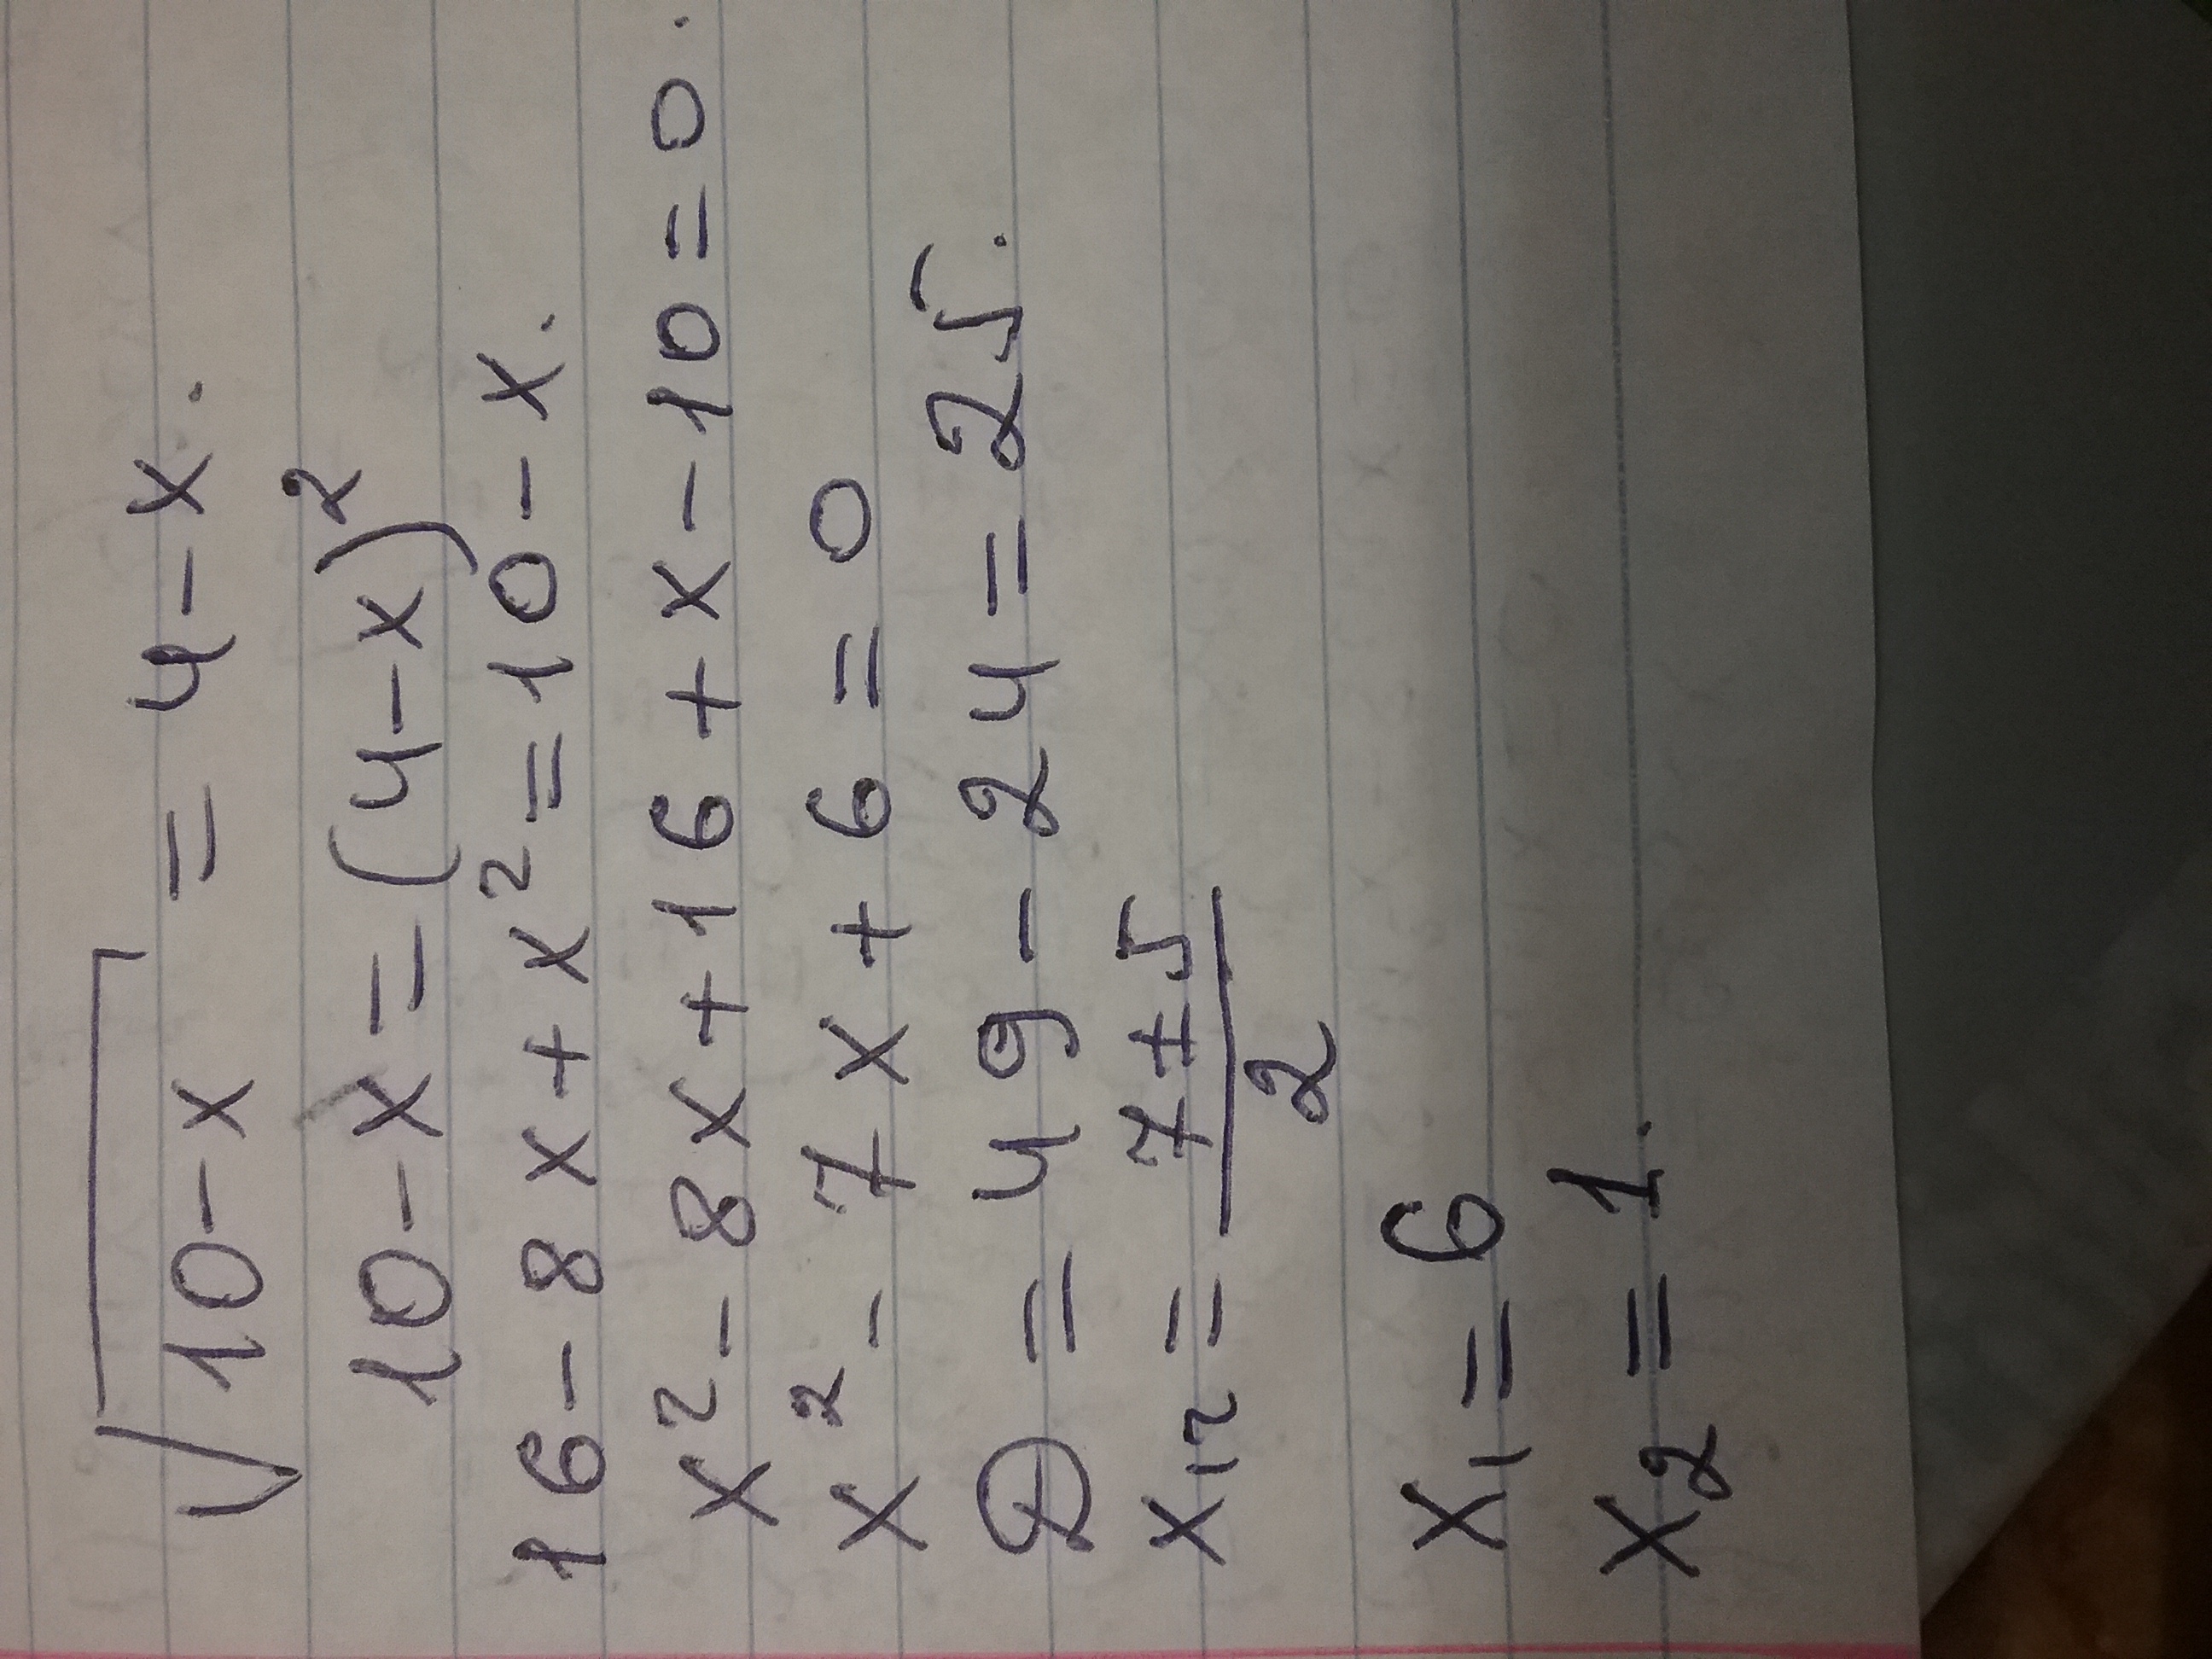 √10-x = 4-x.
10-x=(4-x)²
16-8x+x²=10-x.
x²-8x+16+x-10=0.
x²-7x+6=0
D=49-24=25.
x₁₂=(7±5)/2
x₁=6
x₂=1.